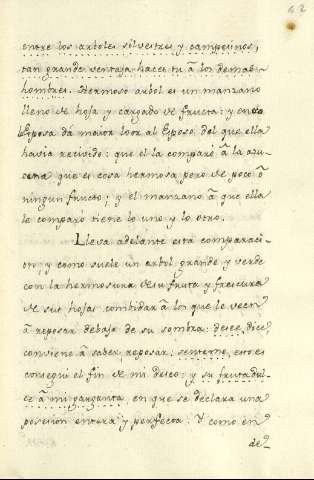 62
entre los arboles silvestres y campesinos,
tan grande ventaja haces tu â los demas
hombres. Hermoso arbol es un manzano
lleno de hoja y cargado de fruta: y en esto
la Esposa dâ maior loor al Esposo del que ella
havia recivido: que êl la comparô â la azu-
cena que es cosa hermosa pero de poco ô
ningun fructo; y el manzano â que ella
le comparô tiene lo uno y lo otro.
Lleva adelante esta comparaci-
on, y como suele un arbol grande y verde
con la hermosura de su fruta y frescura
de sus hojas combidar â los que le veen
â reposar debajo de su sombra: desee, dice,
conviene â saber, reposar, senteme, esto es
consegui el fin de mi deseo: y su fruta dul-
ce â mi garganta, en que se declara una
posesion entera y perfecta. Y como en
de